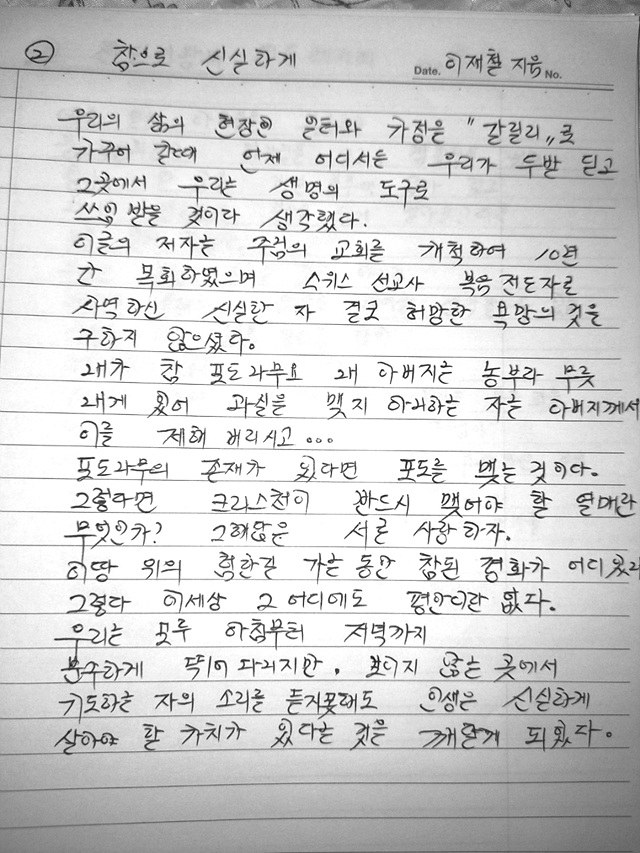 ② 참으로 신실하게 Date. 이재철 지음 No.
우리의 삶의 현장인 일터와 가정을 "갈릴리"로
가꾸어 갈때 언제 어디서든 우리가 두발 딛고
그곳에서 우리는 생명의 도구로
쓰임 받을 것이다 생각했다.
이글의 저자는 주님의 교회를 개척하여 10년
간 목회하였으며 스위스 선교사 복음 전도자로
사역하신 신실한 자 결코 허망한 욕망의 것을
구하지 않으셨다.
내가 참 포도나무요 내 아버지는 농부라 무릇
내게 있어 과실을 맺지 아니하는 자를 아버지께서
이를 제해 버리시고...
포도나무의 존재가 있다면 포도를 맺는 것이다.
그렇다면 크리스천이 반드시 맺어야 할 열매란
무엇인가? 그해답은 서로 사랑하자.
이땅 위의 험한길 가는 동안 참된 평화가 어디있나
그렇다 이세상 그 어디에도 평안이란 없다.
우리는 모두 아침부터 저녁까지
분주하게 뛰어 다니지만, 보이지 않는 곳에서
기도하는 자의 소리를 듣지못해도 인생은 신실하게
살아야 할 가치가 있다는 것을 깨닫게 되었다.